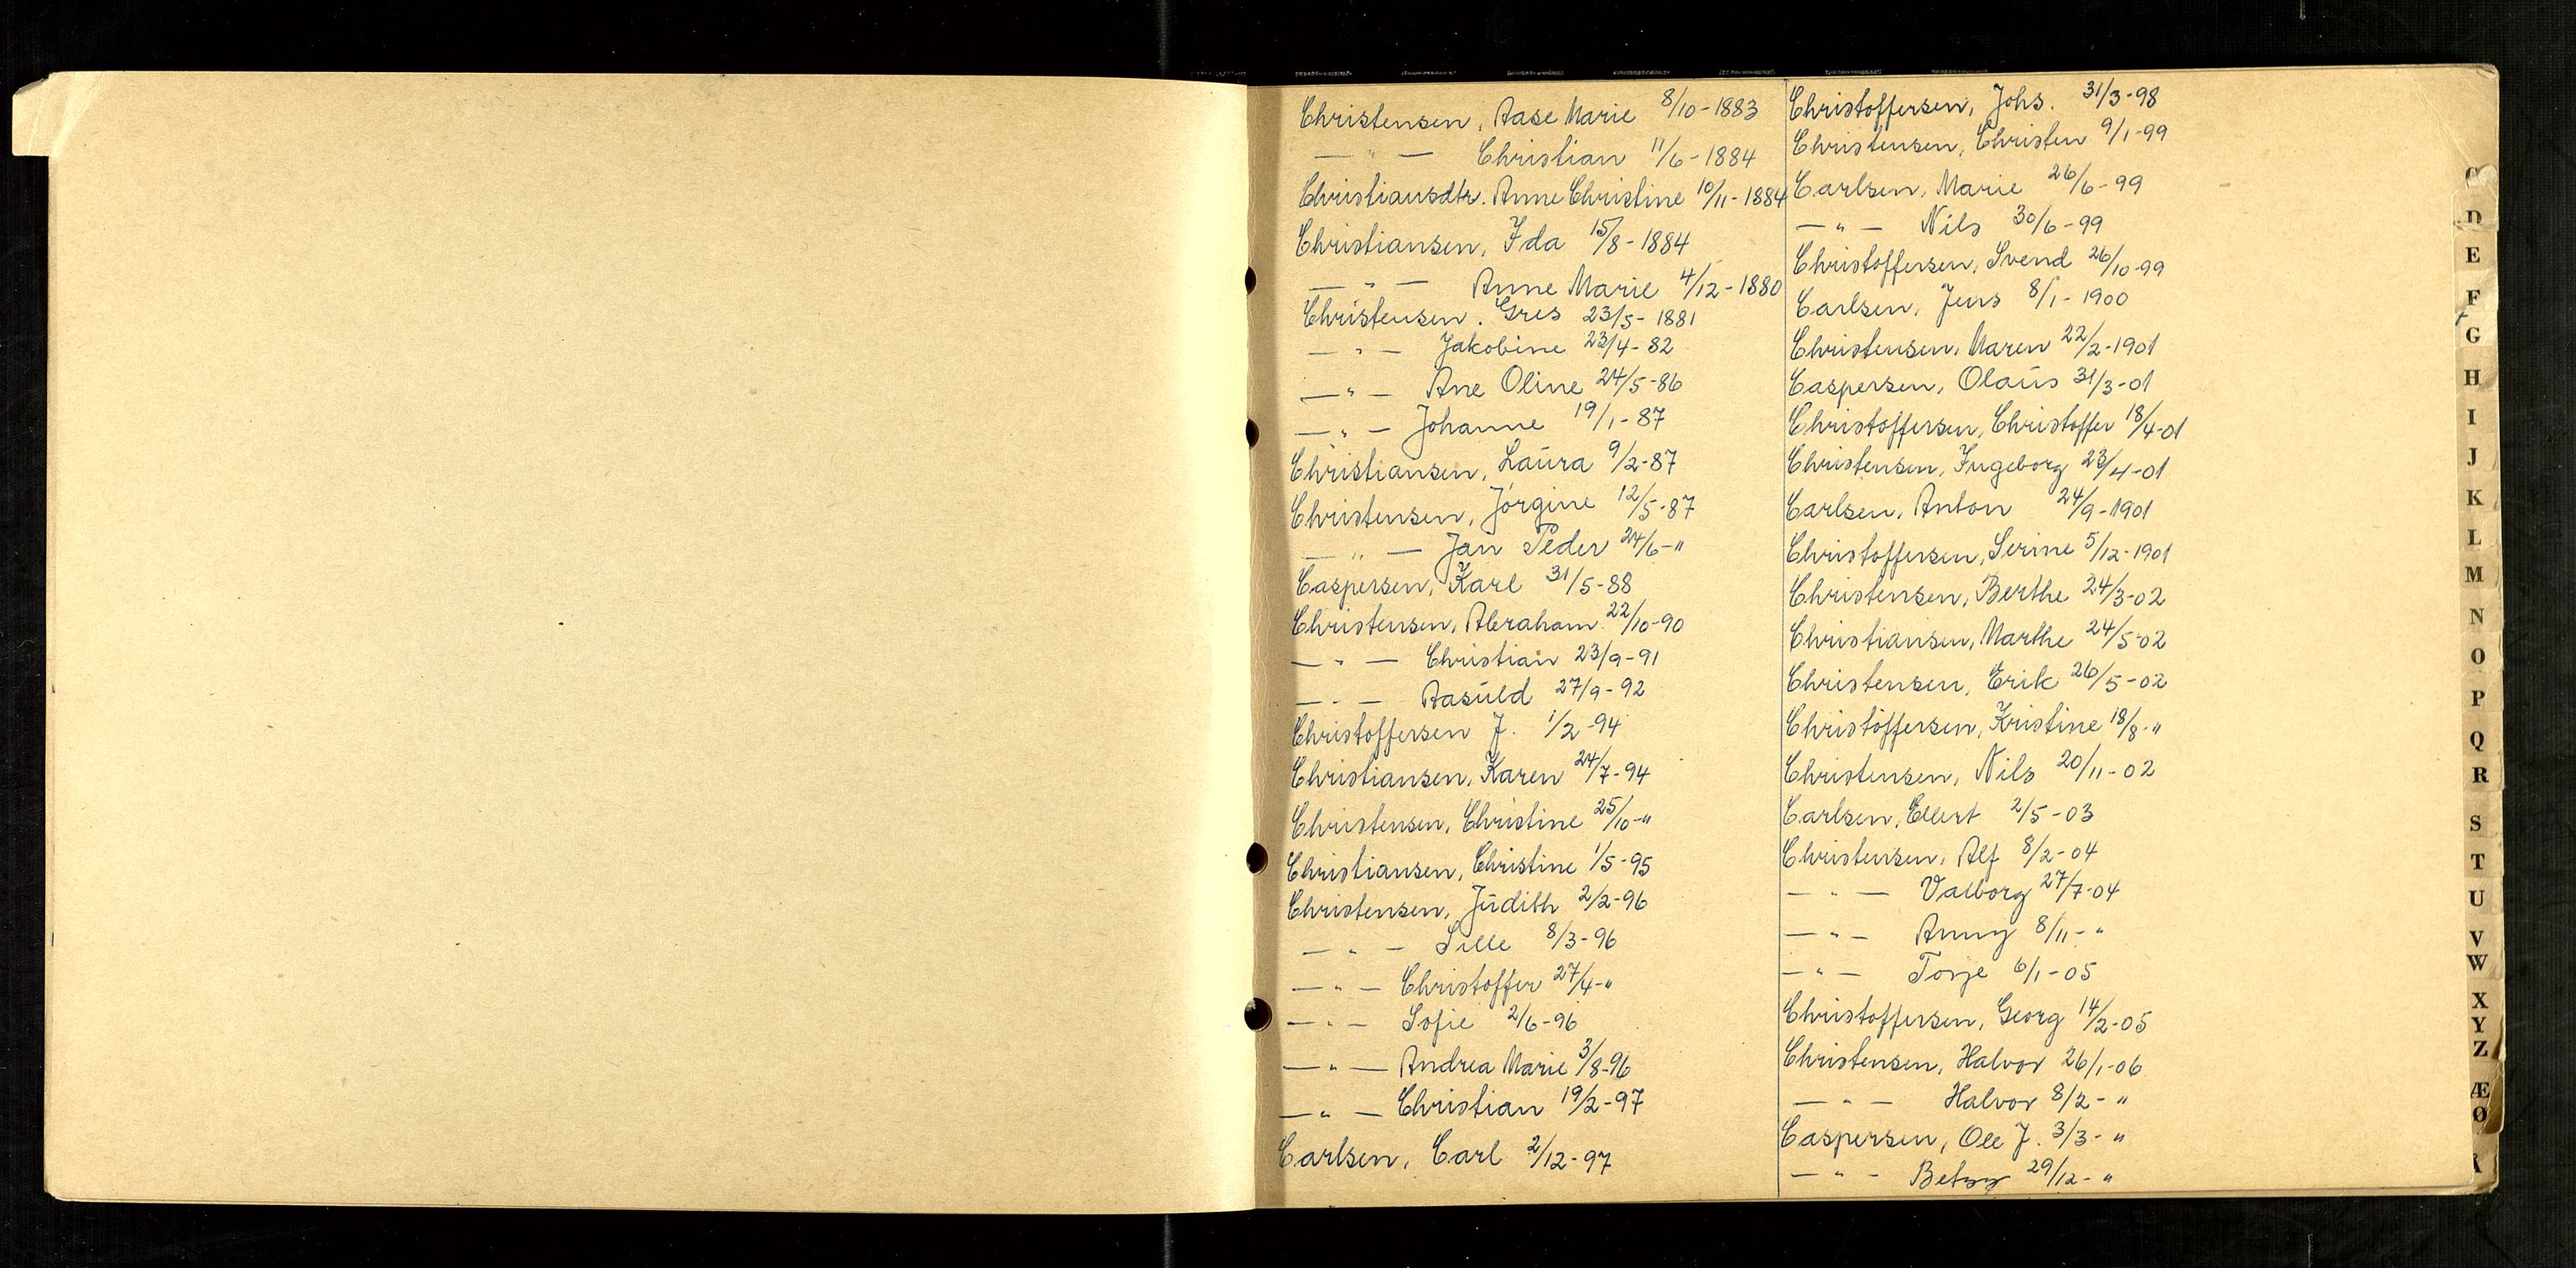 Christensen, Aase Marie 8/10-1883
— " — Christian 11/6-1884
Christiansdtr. Anne Christine 10/11-1884
Christiansen, Ida 15/8-1884
— " — Anne Marie 4/12-1880
Christensen. Gres 23/5-1881
— " — Jakobine 23/4-82
— " — Ane Oline 24/5-86
— " — Johanne 19/1-87
Christiansen, Laura 9/2-87
Christensen, Jörgine 12/5-87
— " — Jan Peder 24/6-"
Caspersen, Karl 31/5-88
Christensen, Abraham 22/10-90
— " — Christian 23/9-91
— " — Aasuld 27/9-92
Christoffersen J. 1/2-94
Christiansen, Karen 24/7-94
Christensen, Christine 25/10-"
Christiansen, Christine 1/5-95
Christensen, Judith 2/2-96
— " — Sille 8/3-96
— " — Christoffer 27/4-"
— " — Sofie 2/6-96
— " — Andrea Marie 3/8-96
— " — Christian 19/2-97
Carlsen, Carl 2/12-97
Christoffersen, Johs. 31/3-98
Christensen, Christen 9/1-99
Carlsen, Marie 26/6-99
— " — Nils 30/6-99
Christoffersen, Svend 26/10-99
Carlsen, Jens 8/1-1900
Christensen, Maren 22/2-1901
Caspersen, Olaus 31/3-01
Christoffersen, Christoffer 18/4-01
Christensen, Ingeborg 23/4-01
Carlsen, Anton 24/9-1901
Christoffersen, Serine 5/12-1901
Christensen, Berthe 24/3-02
Christiansen, Marthe 24/5-02
Christensen, Erik 26/5-02
Christoffersen, Kristine 18/8-"
Christensen, Nils 20/11-02
Carlsen, Ellert 2/5-03
Christensen, Alf 8/2-04
— " — Valborg 27/7-04
— " — Anny 8/11-"
— " — Torje 6/1-05
Christoffersen, Georg 14/2-05
Christensen, Halvor 26/1-06
— " — Halvor 8/2-"
Caspersen, Ole J. 3/3-"
— " — Betsy 29/12-"
C
D
E
F
G
H
I
J
K
L
M
N
O
P
Q
R
S
T
U
V
W
X
Y
Z
Æ
Ø